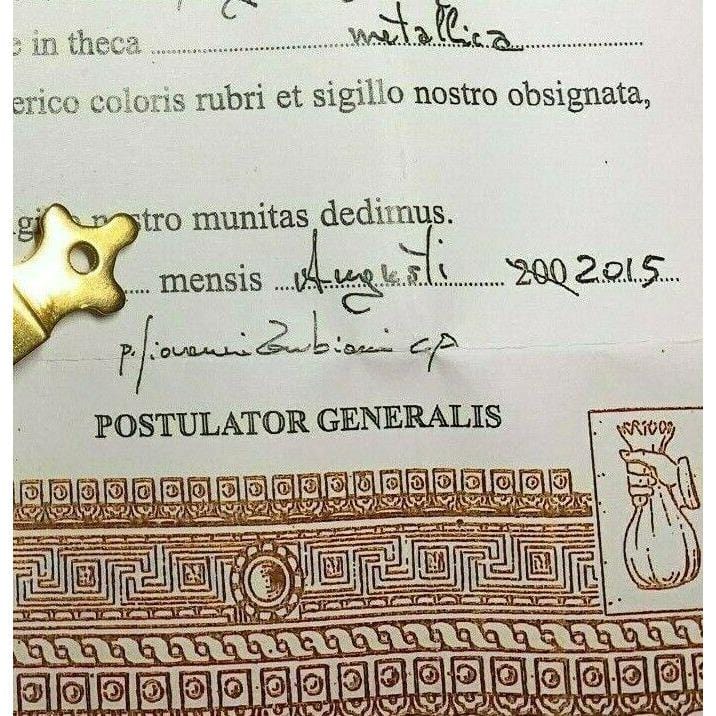 e in theca metallica
erico coloris rubri et sigillo nostro obsignata,
nostro munitas dedimus.
mensis Augusti 200 2015
p. Giovanni Zubiani cp
POSTULATOR GENERALIS